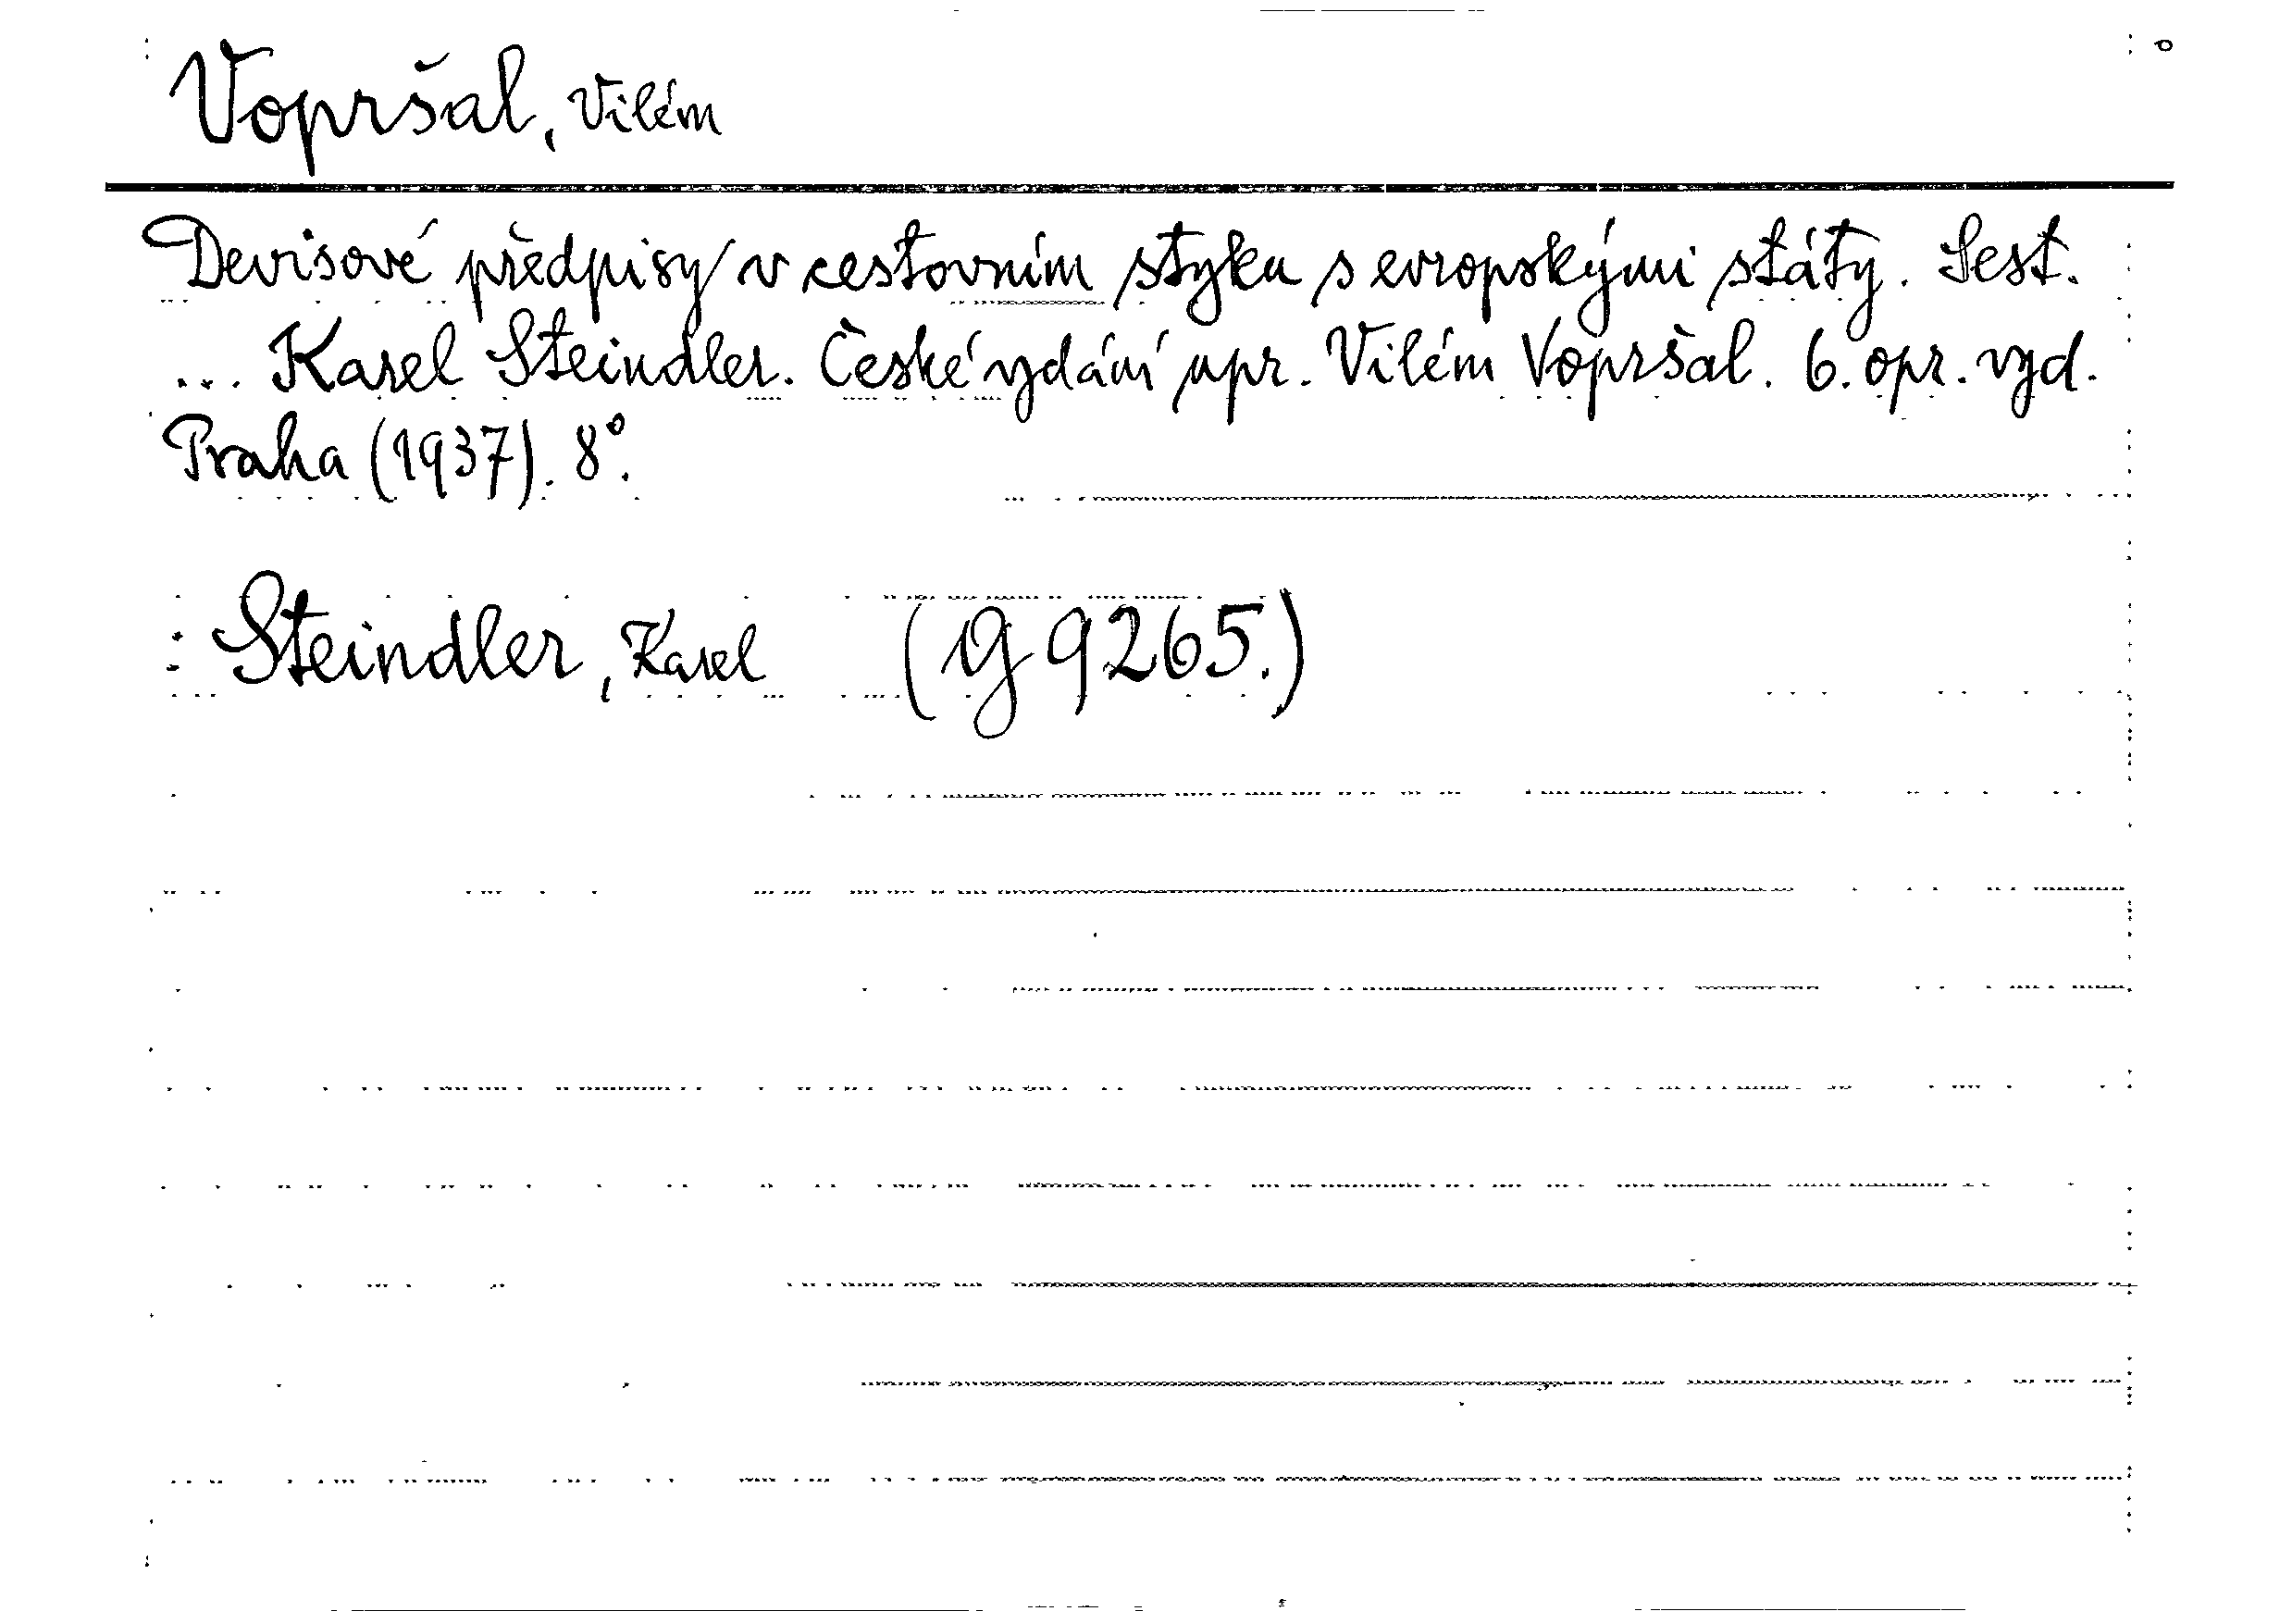 Vopršal, Vilém
Devisové předpisy v cestovním styku s evropskými státy. Sest.
... Karel Steindler. České vydání upr. Vilém Vopršal. 6. opr. vyd.
Praha (1937). 8°.
: Steindler, Karel (g 9265.)